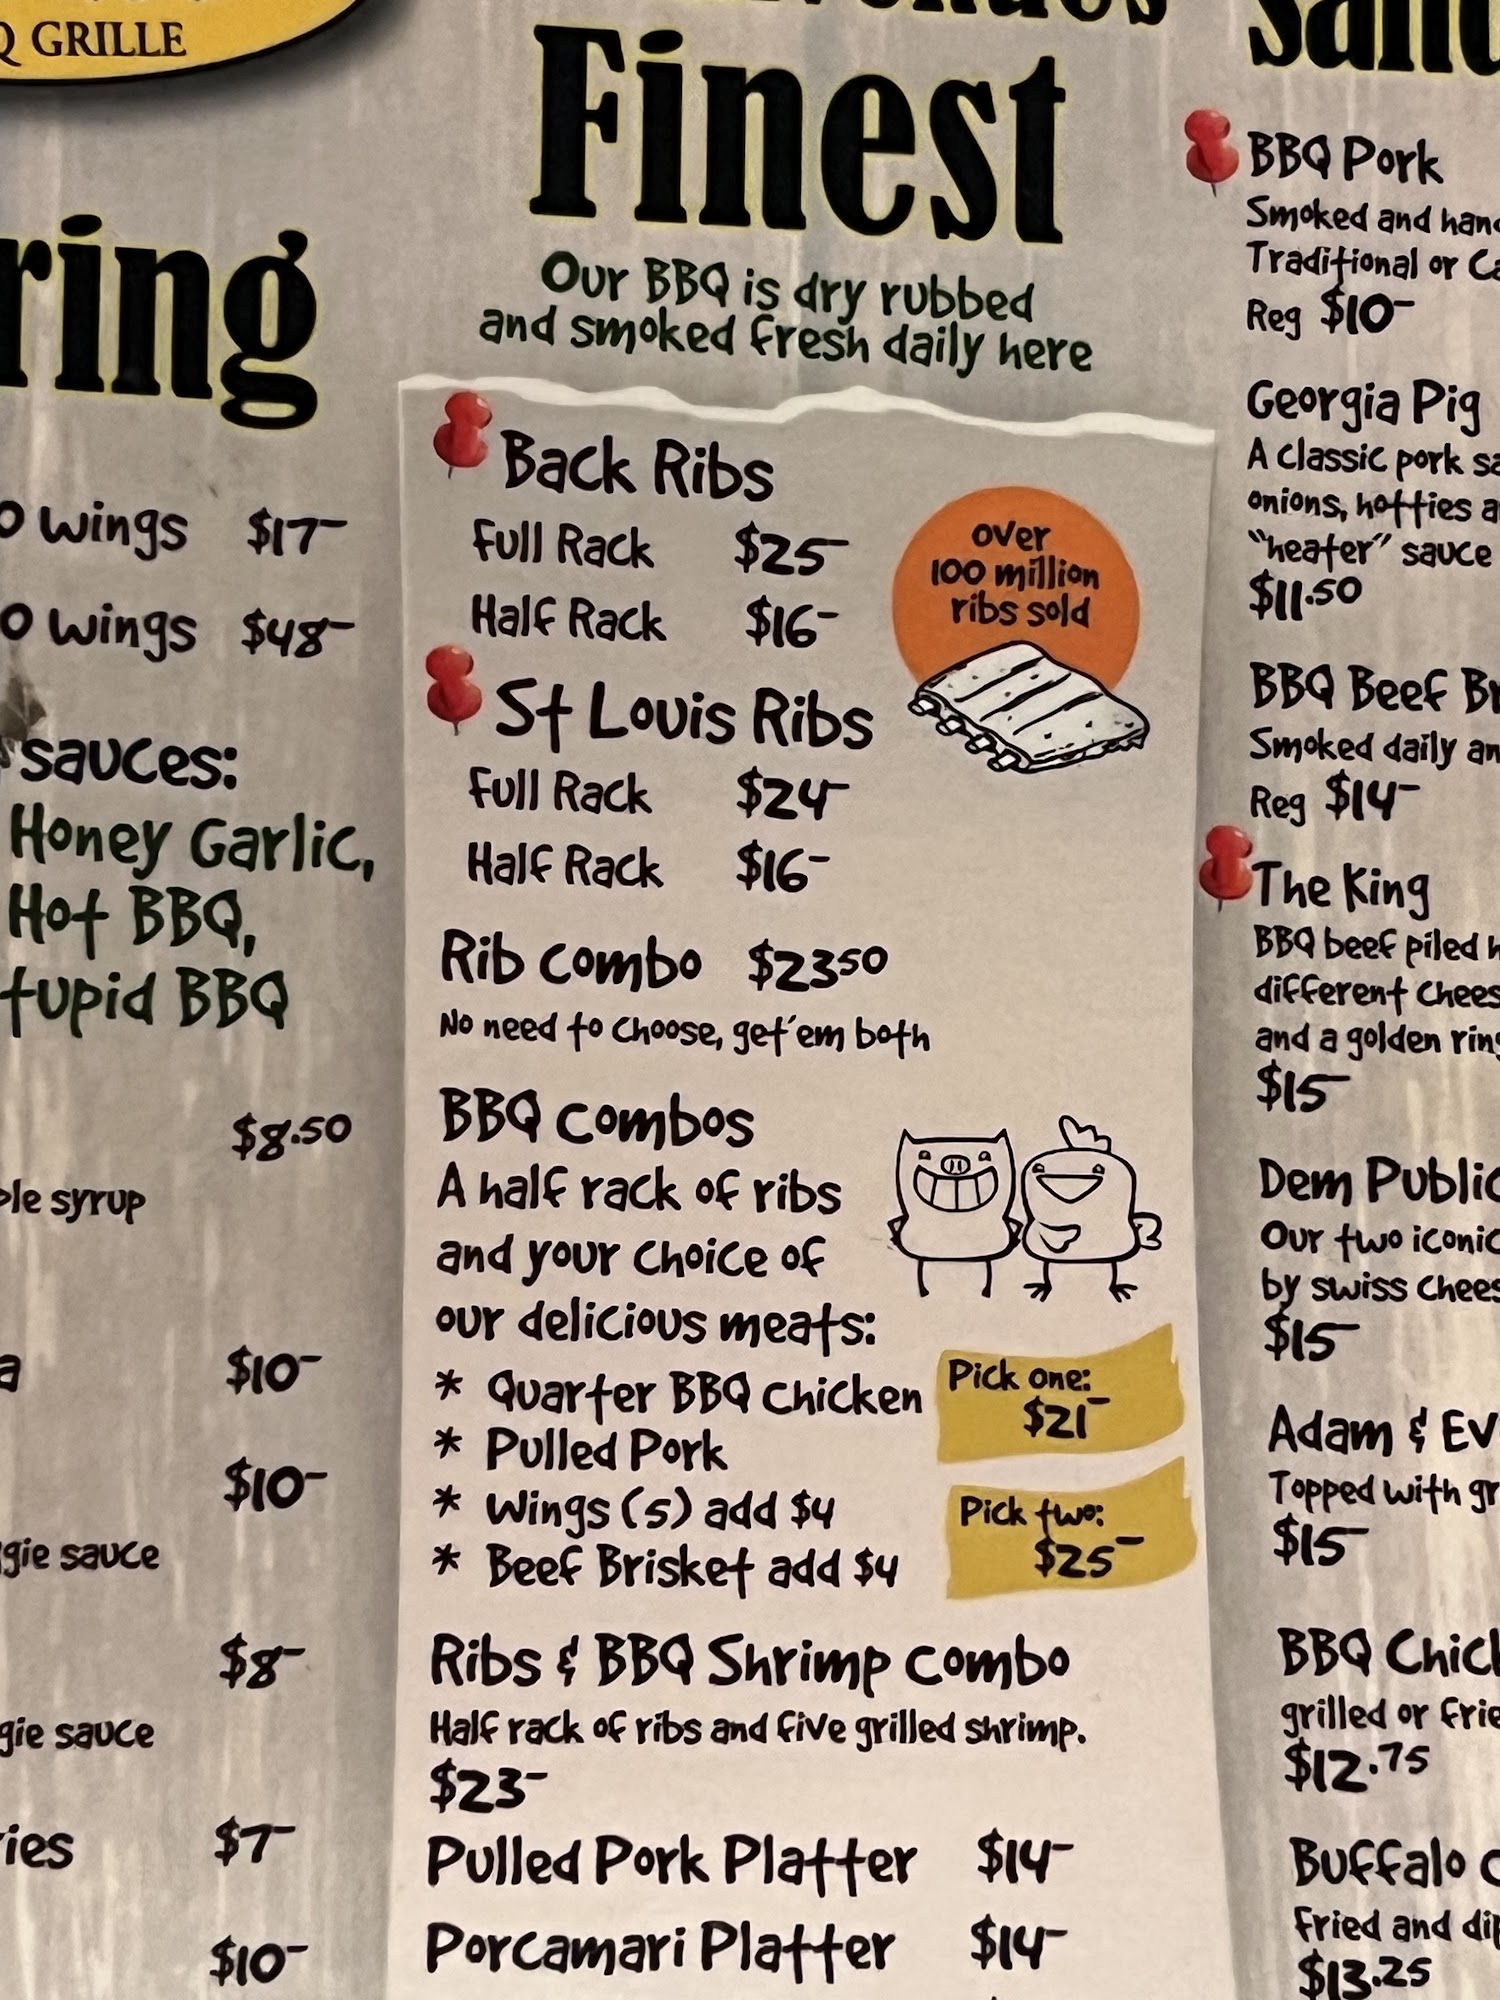 GRILLE
Finest
Our BBQ is dry rubbed
and smoked fresh daily here
wings $17-
wings $48-
sauces:
Honey Garlic,
Hot BBQ,
BBQ
$8.50
syrup
$10-
$10-
sauce
$8-
sauce
$7-
$10-
Back Ribs
Full Rack $25-
Half Rack $16-
over
100 million
ribs sold
St Louis Ribs
Full Rack $24-
Half Rack $16-
Rib combo $2350
No need to choose, get'em both
BBQ combos
A half rack of ribs
and your choice of
our delicious meats:
* Quarter BBQ chicken
* Pulled Pork
* Wings (5) add $4
* Beef Brisket add $4
Pick one:
$21-
Pick two:
$25-
Ribs & BBQ Shrimp combo
Half rack of ribs and five grilled shrimp.
$23-
Pulled Pork Platter $14-
Porcamari Platter $14-
BBQ Pork
Smoked and
Traditional or
Reg $10-
Georgia Pig
A classic pork
onions, hotties
"heater" sauce
$11.50
BBQ Beef
Smoked daily
Reg $14-
The King
BBQ beef piled
different
and a golden
$15-
Dem
Our two
by swiss
$15-
Adam &
Topped with
$15-
BBQ
grilled or
$12.75
Buffalo
Fried and
$13.25